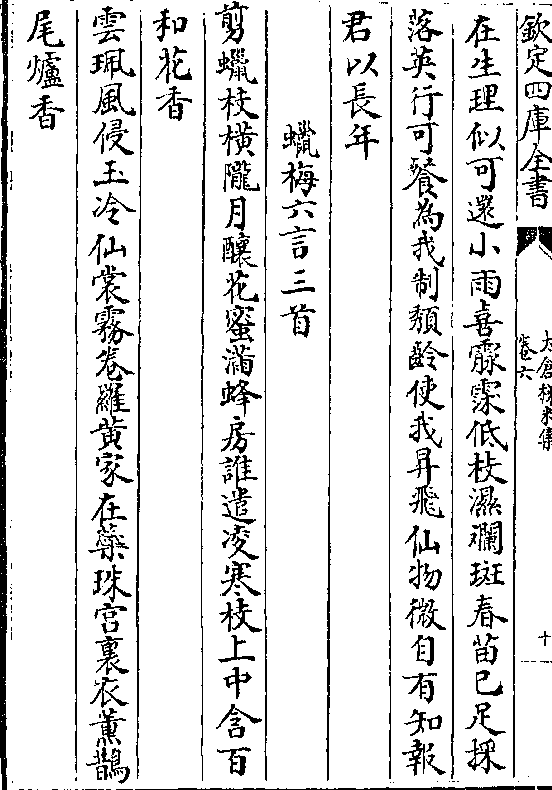 欽定四庫全書
太倉稊米集
卷六
十
在生理似可還小雨喜霢霂低枝濕斕斑春苗已足採
落英行可餐為我制頽齡使我昇飛仙物微自有知報
君以長年
蠟梅六言三首
剪蠟枝横隴月釀花蜜滿蜂房誰遣凌寒枝上中含百
和花香
雲珮風侵玉冷仙裳霧卷羅黄家在蘂珠宫裏衣薰鵲
尾爐香